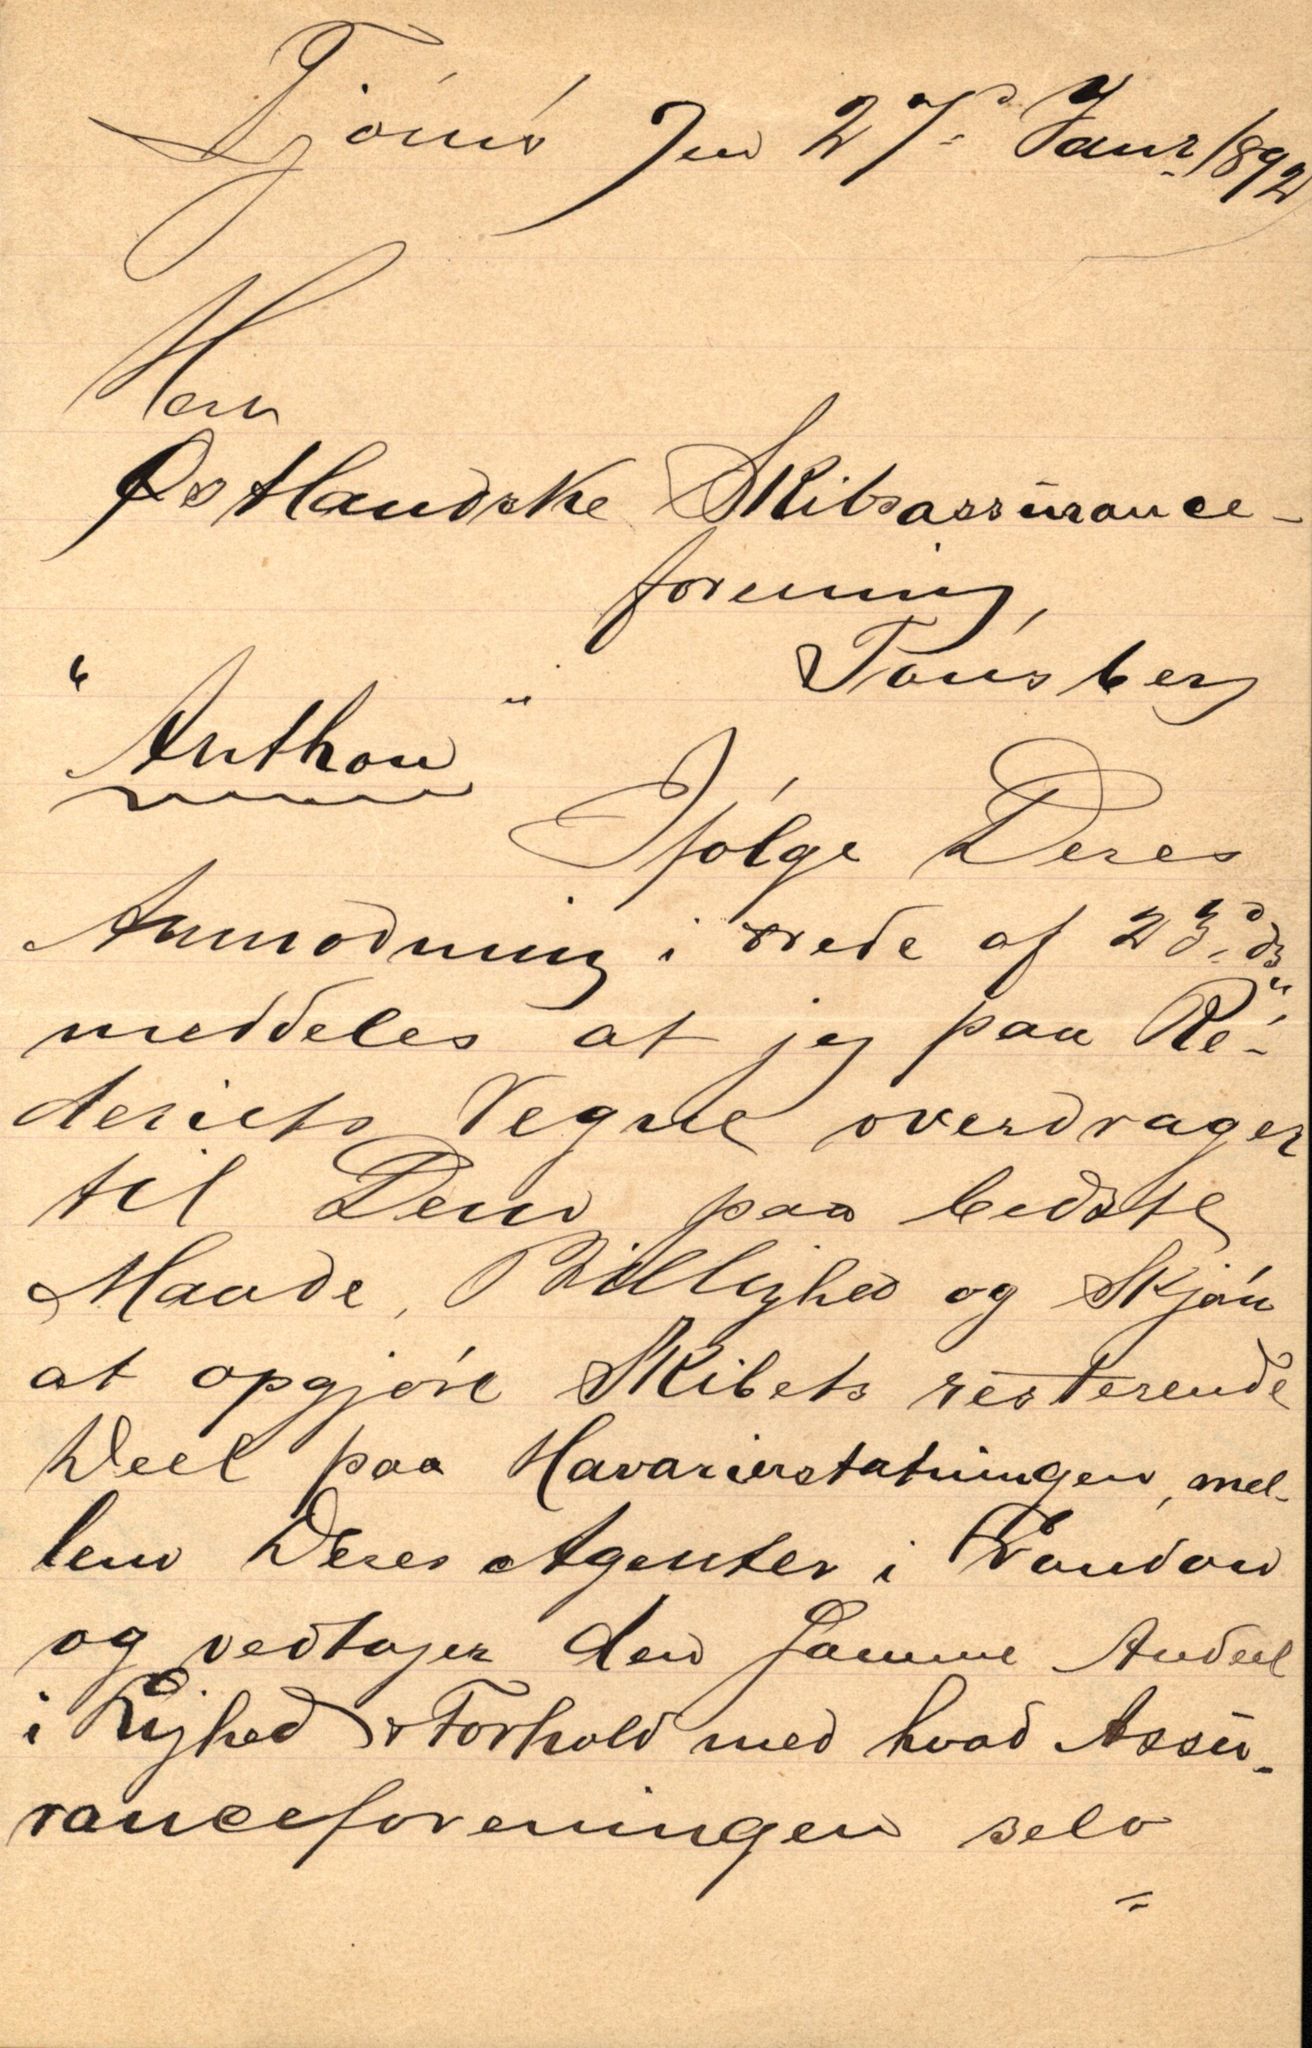 Tjømø den 27de Janr 1892
Herr
Østlandske Skibsassurance-
forening,
Tønsberg
"Anthon"
Ifølge Deres
Anmodning i Brede af 23de ds
meddeles at jeg paa Re-
deriets Vegne overdrager
til Dem paa bedste
Maade, Billighed og Skjøn
at opgjøre Skibets resterende
Deel paa Havarierstatningen, mel-
lem Deres Agenter i London
og vedtager den samme Andeel
i Lighed & Forhold med hvad Assu-
ranceforeningen selv